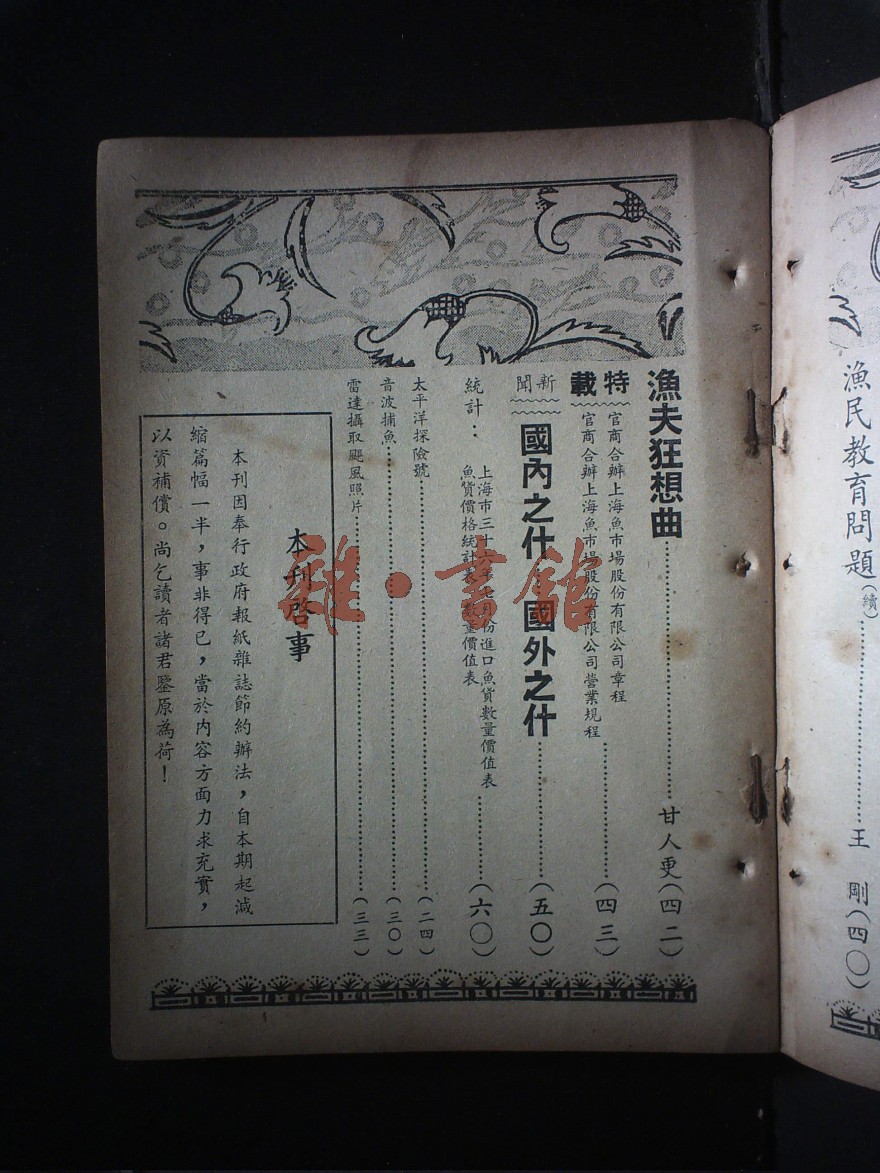 漁民教育問題(續)王 剛(四〇)
漁夫狂想曲甘人更(四二)
特載
官商合辦上海魚市場股份有限公司章程
官商合辦上海魚市場股份有限公司營業規程(四三)
新聞
國內之什 國外之什(五〇)
統計:
上海市三十六年 月份進口魚貨數量價值表
魚貨價格統計表 數量價值表(六〇)
太平洋探險號(二四)
音波捕魚(三〇)
雷達攝取颶風照片(三三)
本刊啓事
本刊因奉行政府報紙雜誌節約辦法,自本期起減
縮篇幅一半,事非得已,當於內容方面力求充實,
以資補償。尚乞讀者諸君鑒原為荷!
雜·書館